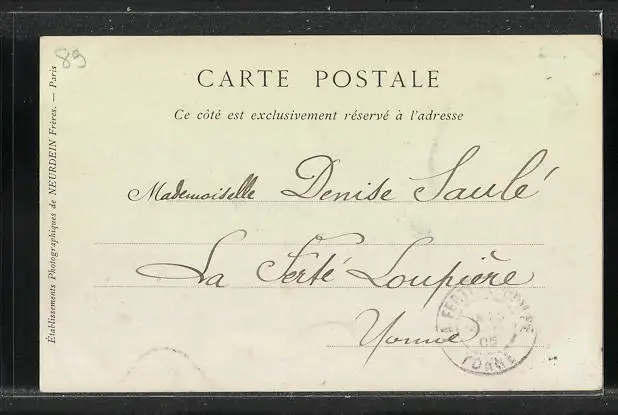 89
CARTE POSTALE
Ce côté est exclusivement réservé à l'adresse
Mademoiselle Denise Saulé
La Ferté Loupière
Yonne
YONNE
Établissements Photographiques de NEURDEIN Frères. — Paris